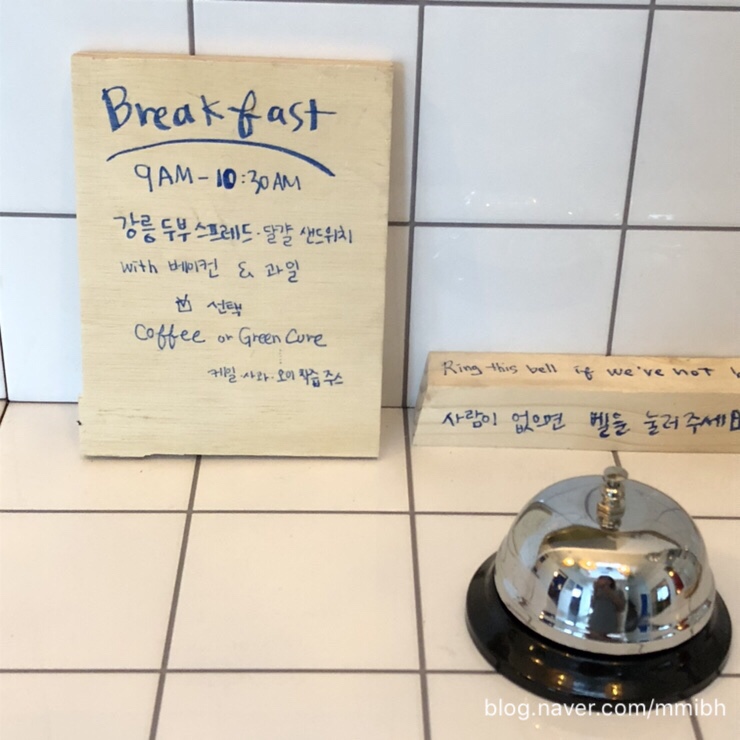 Breakfast
9AM-10:30AM
강릉 두부 스프레드·달걀 샌드위치
with 베이컨 & 과일
☑ 선택
Coffee or Green Cure
케일·사과·오이 착즙 주스
Ring this bell if we've not
사람이 없으면 벨을 눌러주세
blog.naver.com/mmibh